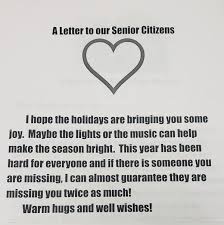 A Letter to our Senior Citizens
I hope the holidays are bringing you some
joy. Maybe the lights or the music can help
make the season bright. This year has been
hard for everyone and if there is someone you
are missing, I can almost guarantee they are
missing you twice as much!
Warm hugs and well wishes!